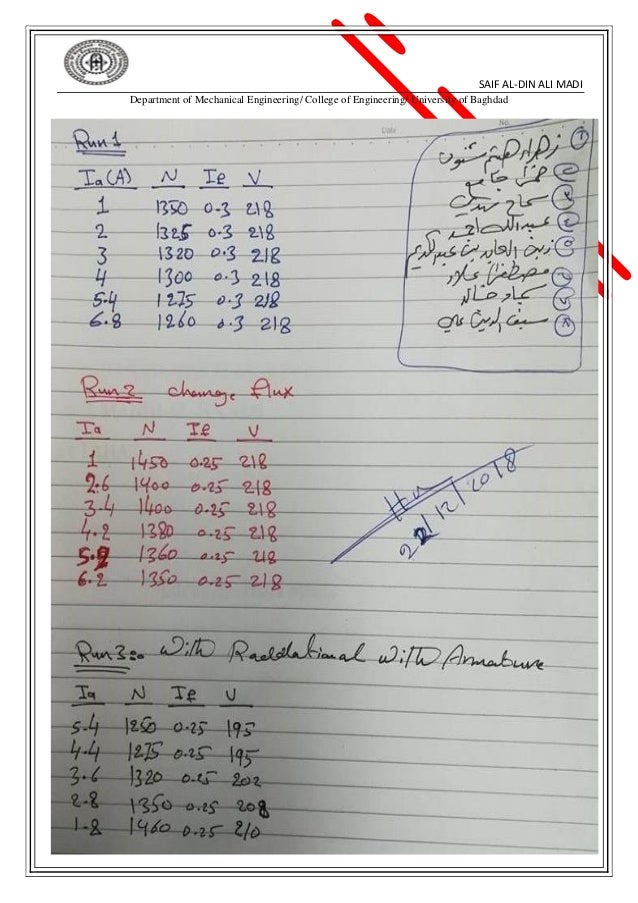 SAIF AL-DIN ALI MADI
Department of Mechanical Engineering/ College of Engineering/ University of Baghdad
Date
No.
Run 1
Ia(A) N If V
1 1350 0.3 218
2 1325 0.3 218
3 1320 0.3 218
4 1300 0.3 218
5.4 1275 0.3 218
6.8 1260 0.3 218
مصطفى علاء
سجاد خالد
سيف الدين علي
Run 2 change flux
Ia N If V
1 1450 0.25 218
2.6 1400 0.25 218
3.4 1400 0.25 218
4.2 1380 0.25 218
5.2 1360 0.25 218
6.2 1350 0.25 218
22/12/2018
Run 3:- With Raddational with Armature
Ia N If V
5.4 1250 0.25 195
4.4 1275 0.25 195
3.6 1320 0.25 202
2.8 1350 0.25 208
1.8 1460 0.25 210